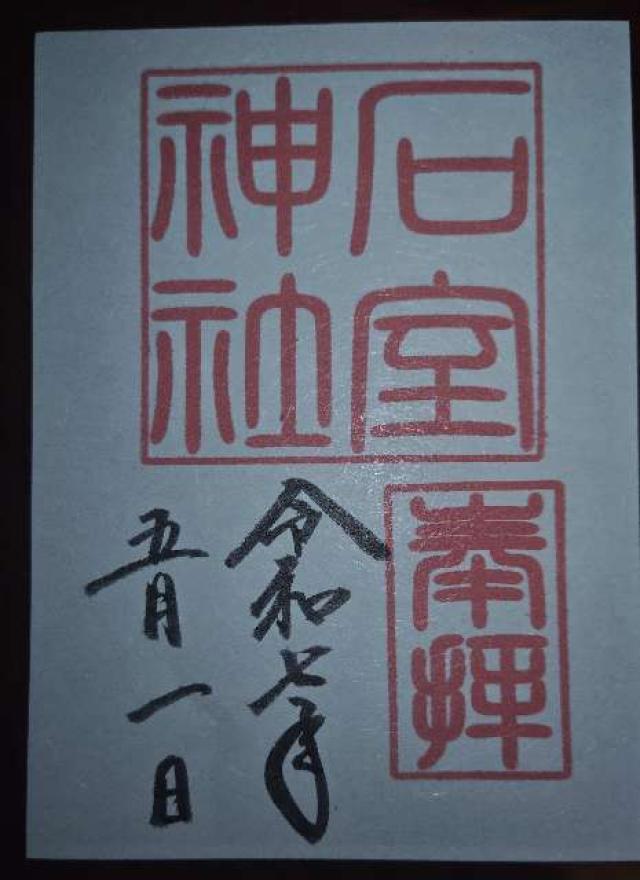 石室
神社
奉拝
令和七年
五月一日